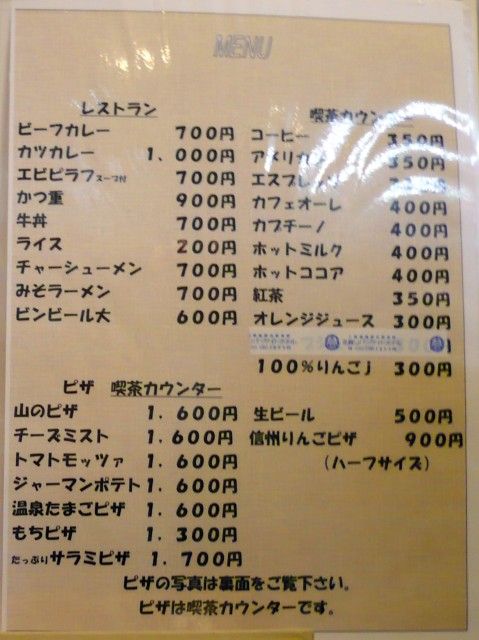 MENU
レストラン
ビーフカレー 700円
カツカレー 1．000円
エビピラフスープ付 700円
かつ重 900円
牛丼 700円
ライス 200円
チャーシューメン 700円
みそラーメン 700円
ビンビール大 600円
ピザ 喫茶カウンター
山のピザ 1．600円
チーズミスト 1．600円
トマトモッツァ 1．600円
ジャーマンポテト 1．600円
温泉たまごピザ 1．600円
もちピザ 1．300円
たっぷりサラミピザ 1．700円
喫茶カウンター
コーヒー 350円
アメリカン 350円
エスプレッソ
カフェオーレ 400円
カプチーノ 400円
ホットミルク 400円
ホットココア 400円
紅茶 350円
オレンジジュース 300円
100％りんごJ 300円
生ビール 500円
信州りんごピザ 900円
（ハーフサイズ）
ピザの写真は裏面をご覧下さい。
ピザは喫茶カウンターです。